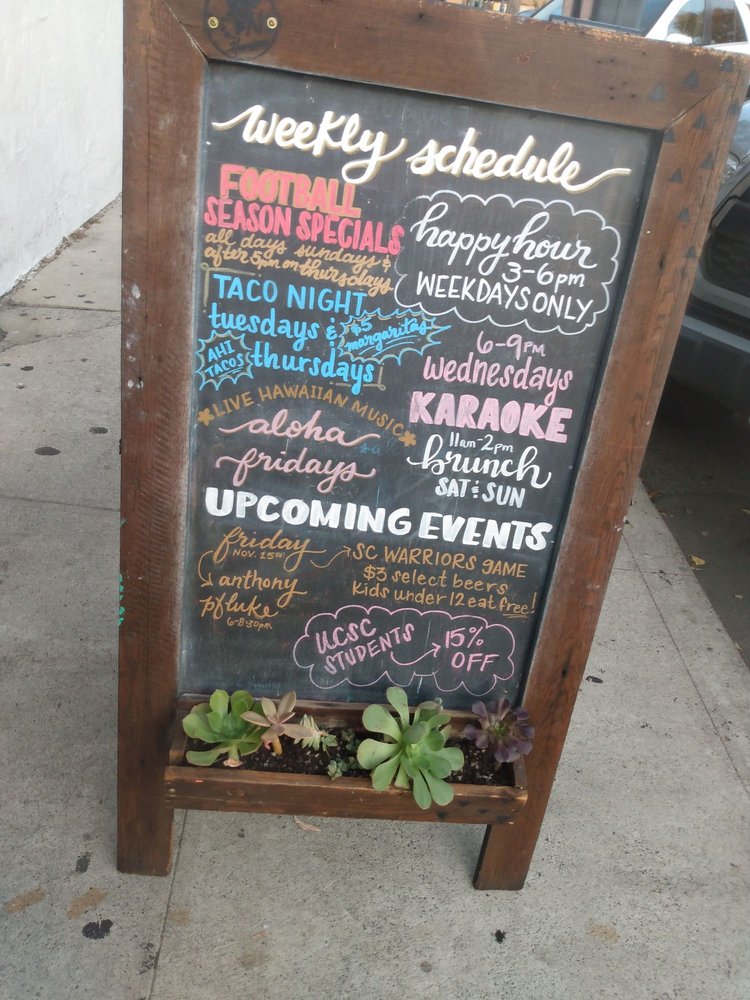 weekly schedule
FOOTBALL
SEASON SPECIALS
all days sundays &
after 5pm on thursdays
happy hour
3-6pm
WEEKDAYS ONLY
TACO NIGHT
tuesdays &
thursdays
$5
margaritas
AHI
TACOS
6-9PM
wednesdays
KARAOKE
LIVE HAWAIIAN MUSIC
aloha
fridays
11am-2pm
brunch
SAT & SUN
UPCOMING EVENTS
friday
NOV. 15TH
anthony
pfluke
6-8:30pm
SC WARRIORS GAME
$3 select beers
kids under 12 eat free!
UCSC
STUDENTS
15%
OFF